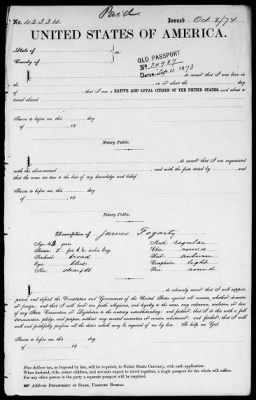 Paid
No. 42534 Issued Oct 2/74
UNITED STATES OF AMERICA.
State of
County of ss:
OLD PASSPORT
No.
Dated Sep. 11 1873
do swear that I was born in
on or about the day
of that I am a NATIVE AND LOYAL CITIZEN OF THE UNITED STATES, and about to
travel abroad
Sworn to before me, this day
of 18
Notary Public.
do swear that I am acquainted
with the above-named and with the facts stated by
that the same are true to the best of my knowledge and belief.
Sworn to before me, this day
of 18
Notary Public.
Description of James Fogarty
Age: years Mouth: regular
Stature: 5 feet inches, Eng. Chin: round
Forehead: broad Hair: auburn
Eyes: blue Complexion: light
Nose: straight Face: round
I, do solemnly swear that I will support,
protect, and defend the Constitution and Government of the United States against all enemies, whether domestic
or foreign; and that I will bear true faith, allegiance, and loyalty to the same, any ordinance, resolution, or law
of any State, Convention, or Legislature to the contrary notwithstanding; and further, that I do this with a full
determination, pledge, and purpose, without any mental reservation or evasion whatsoever; and further, that I will
well and faithfully perform all the duties which may be required of me by law: So help me God.
Sworn to before me, this day
of 18
Notary Public.
Five dollars tax, as imposed by law, will be required, in United States Currency, with each application.
When husband, wife, minor children, and servants expect to travel together, a single passport for the whole will suffice.
For any other person in the party a separate passport will be required.
Address DEPARTMENT OF STATE, PASSPORT BUREAU.